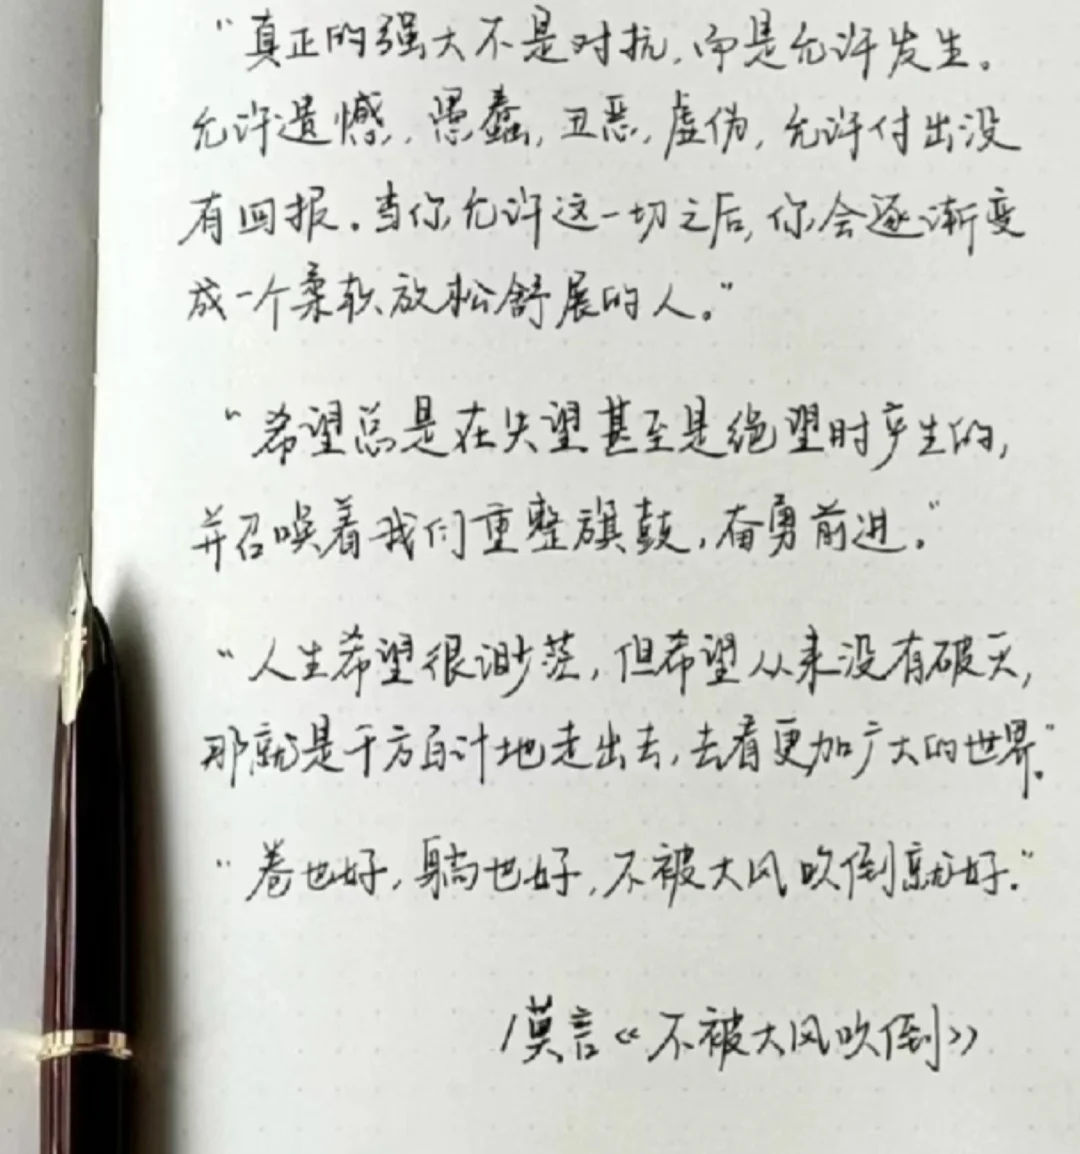 “真正的强大不是对抗,而是允许发生。
允许遗憾,愚蠢,丑恶,虚伪,允许付出没
有回报。当你允许这一切之后,你会逐渐变
成一个柔软放松舒展的人。”
“希望总是在失望甚至是绝望时产生的,
并召唤着我们重整旗鼓,奋勇前进。”
“人生希望很渺茫,但希望从来没有破灭,
那就是千方百计地走出去,去看更加广大的世界。”
“卷也好,躺也好,不被大风吹倒就好.”
/莫言《不被大风吹倒》